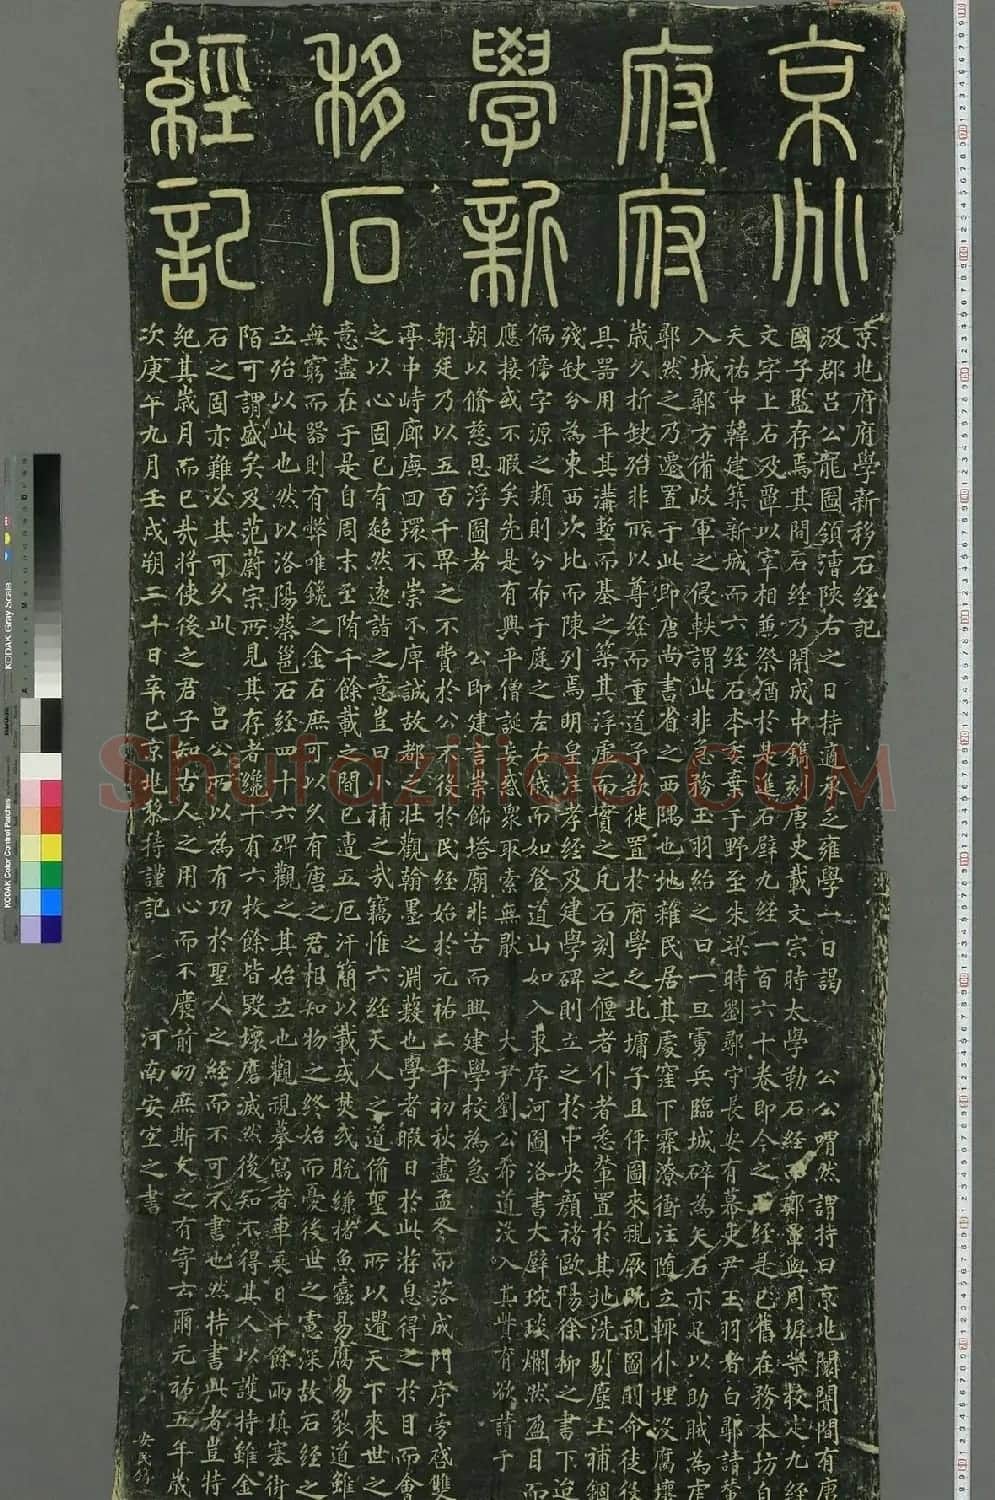 京兆
府府
學新
移石
經記
京兆府府學新移石經記
汲郡呂公龍圖領漕陝右之日持適承乏雍學一日謁 公公喟然謂持曰京兆闤闠間有唐
國子監存焉其間石經乃開成中鐫刻唐史載文宗時太學勒石經 鄭覃與周墀等校定九經
文字上石及覃以宰相兼祭酒於是進石壁九經一百六十卷即今之石經是已舊在務本坊自
天祐中韓建築新城而六經石本委棄于野至朱梁時劉鄩守長安有幕吏尹玉羽者白鄩請輦
入城鄩方備岐軍之侵軼謂此非急務玉羽紿之曰一旦虜兵臨城碎為矢石亦足以助賊為虐
鄩然之乃遷置于此即唐尚書省之西隅也地雜民居其處窪下霖潦衝注隨立輒仆埋沒腐壞
歲久折缺殆非所以尊經而重道予欲徙置於府學之北墉子且伻圖來視厥既視圖則命徒役
具器用平其溝塹而基之築其浮虛而實之凡石刻之偃者仆者悉輦置於其地洗剔塵土補錮
殘缺分為東西次比而陳列焉明皇注孝經及建學碑則立之於中央顏褚歐陽徐柳之書下迨
偏傍字源之類則分布于庭之左右俄而如登道山如入東序河圖洛書大璧琬琰爛然盈目而
應接或不暇矣先是有興平僧誕妄惑眾取索無猒 大尹劉公希道沒入其貲有欲請于
朝以脩慈恩浮圖者 公即建言崇飾塔廟非古而興建學校為急
朝廷乃以五百千畀之不費於公不役於民經始於元祐二年初秋盡孟冬而落成門序旁啟雙
亭中峙廊廡回環不崇不庳誠故都之壯觀翰墨之淵藪也學者暇日於此游息得之於目而會
之以心固已有超然遠詣之意豈曰小補之哉竊惟六經天人之道備聖人所以遺天下來世之
意盡在于是自周末至隋千餘載之間已遭五厄汗簡以載或焚或脫縑楮魚蠹易腐易裂道雖
無窮而器則有弊唯鐫之金石庶可以久有唐之君相知物之終始而憂後世之慮深故石經之
立殆以此也然以洛陽蔡邕石經四十六碑觀之其始立也觀視摹寫者車乘日千餘兩填塞街
陌可謂盛矣及范蔚宗所見其存者纔十有六枚餘皆毀壞磨滅然後知不得其人以護持雖金
石之固亦難必其可久此 呂公所以為有功於聖人之經而不可不書也然持書此者豈特
紀其歲月而已哉將使後之君子知古人之用心而不廢前功庶斯文之有寄云爾元祐五年歲
次庚午九月壬戌朔二十日辛巳京兆黎持謹記 河南安宜之書
安民鐫
Shufaziliao.COM
KODAK Color Control Patches
KODAK Gray Scale